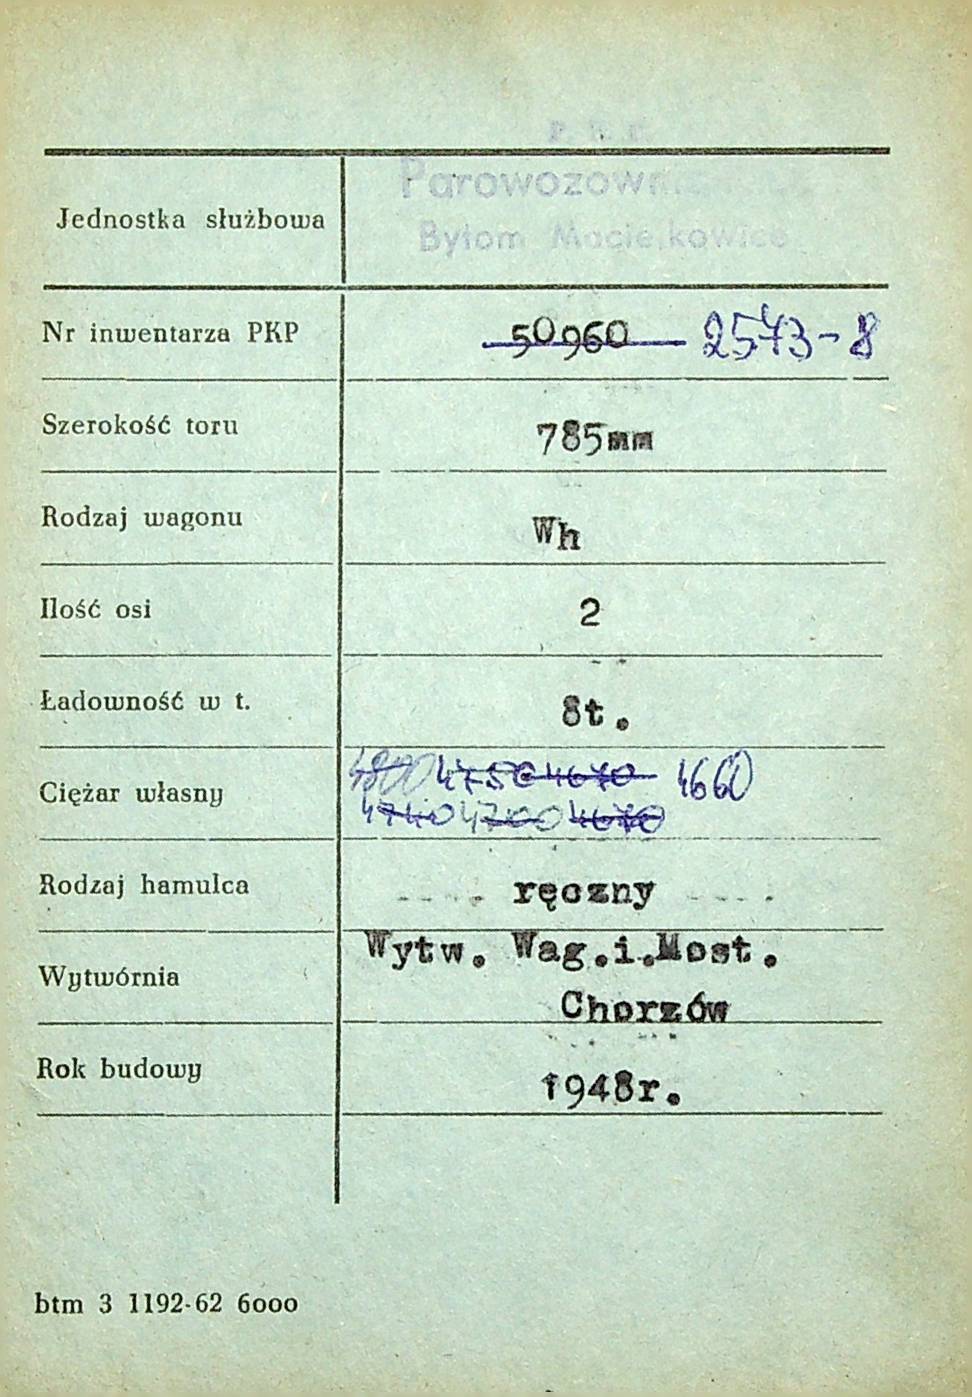 P. K. P.
Parowozownia
Bytom Maciejkowice
Jednostka służbowa
Nr inwentarza PKP 50960 2573-8
Szerokość toru 785mm
Rodzaj wagonu Wh
Ilość osi 2
Ładowność w t. 8t.
Ciężar własny 4800 4750 4670 4660
4740 4700 4670
Rodzaj hamulca ręczny
Wytwórnia Wytw. Wag.i.Most.
Chorzów
Rok budowy 1948r.
btm 3 1192-62 6000